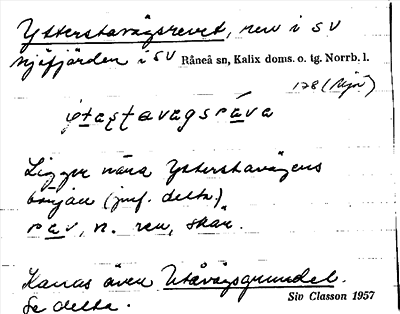 Ytterstavägsrevet, rev i SV
Njöfjärden i SV Råneå sn, Kalix doms. o. tg. Norrb. l.
178 (Njö)
Ligger nära Ytterstavägens
början (jmf. detta)
rav, n. rev, skär.
Kallas även Utåvägsgrundet.
Se detta. Siv Classon 1957